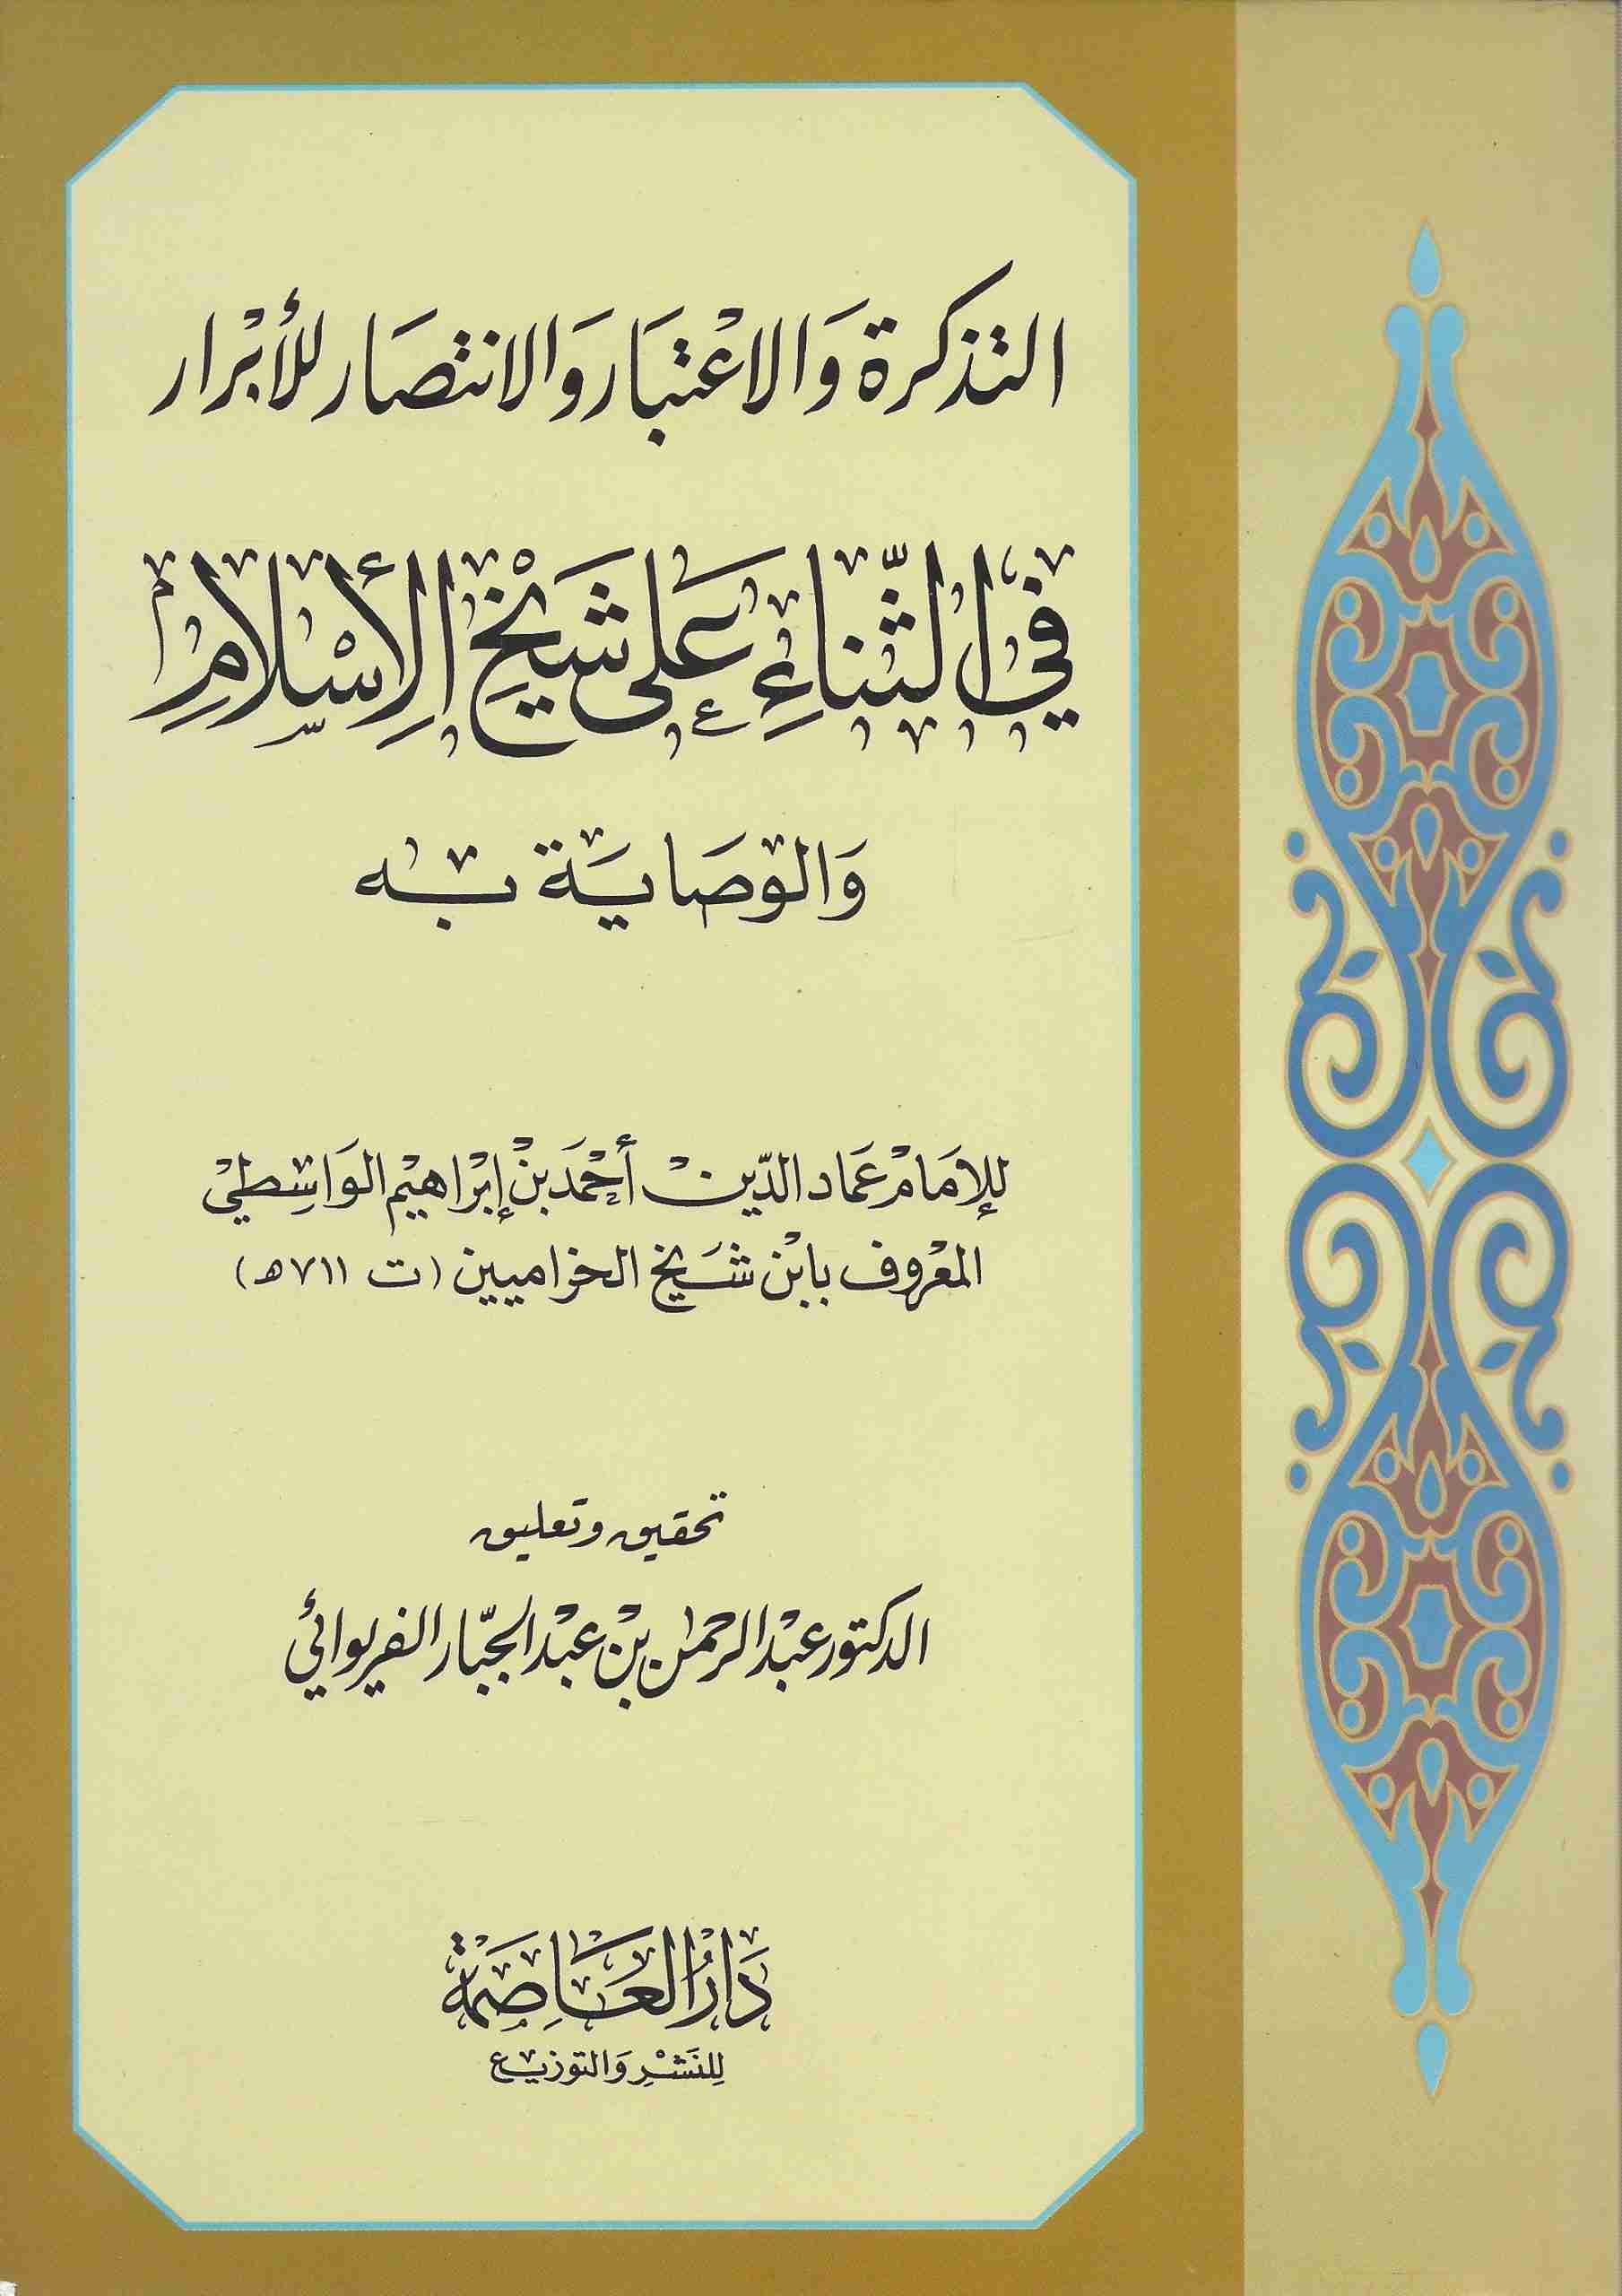 التذكرة وَالاعْتبَار وَالانتصَار للأبْرار
في الثَّناءِ عَلى شَيْخِ الإِسْلامِ
وَالوصَاية به
للإمَامْ عمَاد الدّين أحْمَد بنْ إبْراهيْم الوَاسِطيْ
المعْروف بابْن شَيْخ الحزاميين (ت ٧١١هـ)
تحقيق وتعليق
الدكتور عبْد الرحمٰن بنْ عبْد الجبّار الفريوائي
دَارُ العَاصِمَة
لِلنَشْرِ وَالتوزيع